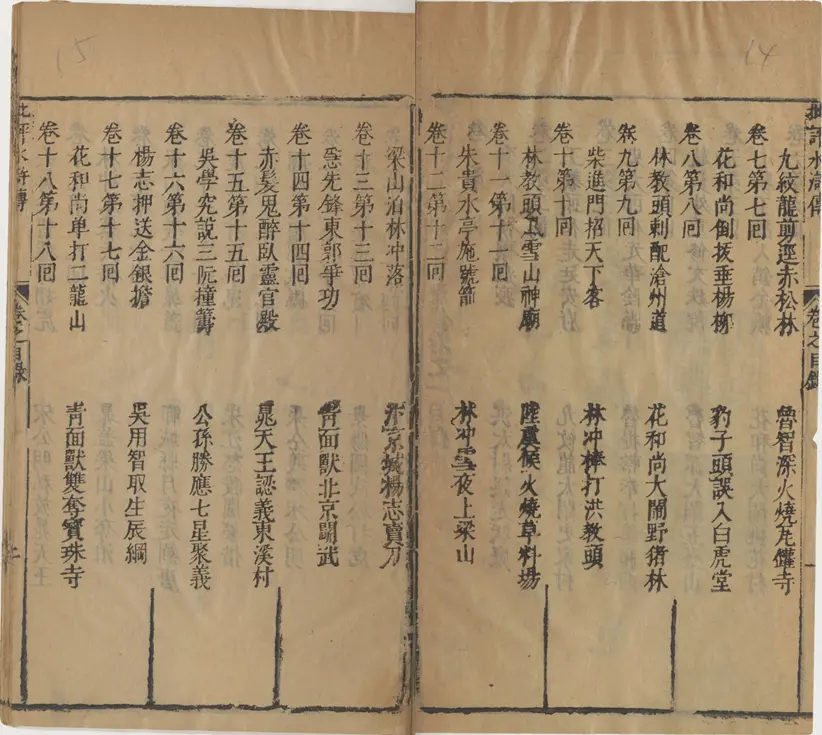 14
批評水滸傳
卷之目錄
九紋龍剪逕赤松林 魯智深火燒瓦鑵寺
卷七第七囘
花和尚倒拔垂楊柳 豹子頭誤入白虎堂
卷八第八囘
林教頭刺配滄州道 花和尚大鬧野猪林
卷九第九囘
柴進門招天下客 林冲棒打洪教頭
卷十第十囘
林教頭風雪山神廟 陸虞候火燒草料場
卷十一第十一囘
朱貴水亭施號箭 林冲雪夜上梁山
卷十二第十二囘
15
梁山泊林冲落 汴京城楊志賣刀
卷十三第十三囘
急先鋒東郭爭功 青面獸北京鬭武
卷十四第十四囘
赤髮鬼醉臥靈官殿 晁天王認義東溪村
卷十五第十五囘
吳學究說三阮撞籌 公孫勝應七星聚義
卷十六第十六囘
楊志押送金銀擔 吳用智取生辰綱
卷十七第十七囘
花和尚单打二龍山 青面獸雙奪寳珠寺
卷十八第十八囘
批評水滸傳
卷之目錄